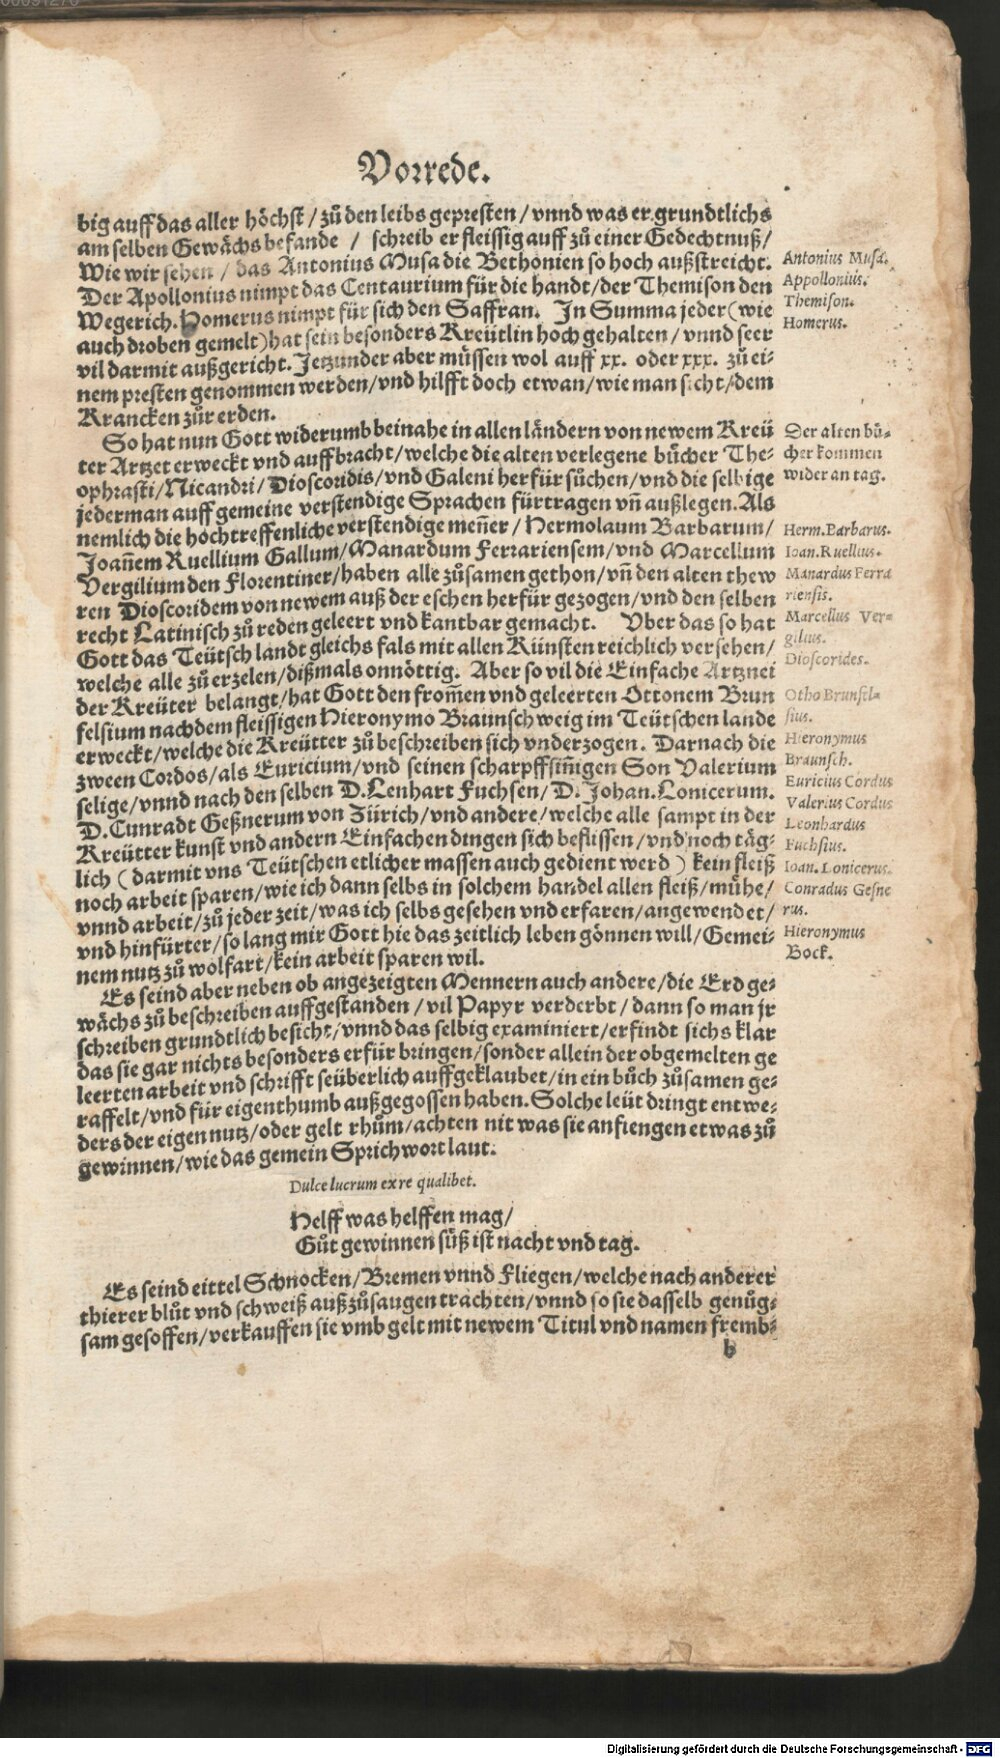 Vorrede.
big auff das aller höchst / zů den leibs gepresten / vnnd was er grundtlichs
am selben Gewächs befande / schreib er fleissig auff zů einer Gedechtnuß /
Wie wir sehen / das Antonius Musa die Bethonien so hoch außstreicht.
Der Apollonius nimpt das Centaurium für die handt / der Themison den
Wegerich. Homerus nimpt für sich den Saffran. In Summa jeder (wie
auch droben gemelt) hat sein besonders Kreütlin hoch gehalten / vnnd seer
vil darmit außgericht. Jetzunder aber müssen wol auff xx. oder xxx. zů ei⸗
nem presten genommen werden / vnd hilfft doch etwan / wie man sicht / dem
Krancken zůr erden.
So hat nun Gott widerumb beinahe in allen ländern von newem Kreü
ter Artzet erweckt vnd auffbracht / welche die alten verlegene bůcher The⸗
ophrasti / Nicandri / Dioscoridis / vnd Galeni herfür sůchen / vnd die selbige
jederman auff gemeine verstendige Sprachen fürtragen vñ außlegen. Als
nemlich die hochtreffenliche verstendige meñer / Hermolaum Barbarum /
Joañem Ruellium Gallum / Manardum Ferrariensem / vnd Marcellum
Vergilium den Florentiner / haben alle zůsamen gethon / vñ den alten thew
ren Dioscoridem von newem auß der eschen herfür gezogen / vnd den selben
recht Latinisch zů reden geleert vnd kantbar gemacht. Vber das so hat
Gott das Teütsch landt gleichs fals mit allen Künsten reichlich versehen /
welche alle zů erzelen / dißmals onnöttig. Aber so vil die Einfache Artznei
der Kreüter belangt / hat Gott den from̃en vnd geleerten Ottonem Brun
felsium nach dem fleissigen Hieronymo Braunschweig im Teütschen lande
erweckt / welche die Kreütter zů beschreiben sich vnderzogen. Darnach die
zween Cordos / als Euricium / vnd seinen scharpffsiñigen Son Valerium
selige / vnnd nach den selben D. Lenhart Fuchsen / D. Johan. Lonicerum.
D. Cunradt Geßnerum von Zürich / vnd andere / welche alle sampt in der
Kreütter kunst vnd andern Einfachen dingen sich beflissen / vnd noch täg⸗
lich (darmit vns Teütschen etlicher massen auch gedient werd) kein fleiß
noch arbeit sparen / wie ich dann selbs in solchem handel allen fleiß / mühe /
vnnd arbeit / zů jeder zeit / was ich selbs gesehen vnd erfaren / angewendet /
vnd hinfürter / so lang mir Gott hie das zeitlich leben gönnen will / Gemei⸗
nem nutz zů wolfart / kein arbeit sparen wil.
Es seind aber neben ob angezeigten Mennern auch andere / die Erd ge⸗
wächs zů beschreiben auffgestanden / vil Papyr verderbt / dann so man jr
schreiben grundtlich besicht / vnnd das selbig examiniert / erfindt sichs klar
das sie gar nichts besonders erfür bringen / sonder allein der obgemelten ge
leerten arbeit vnd schrifft seüberlich auffgeklaubet / in ein bůch zůsamen ge⸗
raffelt / vnd für eigenthumb außgegossen haben. Solche leüt dringt entwe⸗
ders der eigen nutz / oder gelt rhům / achten nit was sie anfiengen etwas zů
gewinnen / wie das gemein Sprichwort laut.
Dulce lucrum ex re qualibet.
Helff was helffen mag /
Gůt gewinnen süß ist nacht vnd tag.
Es seind eittel Schnocken / Bremen vnnd Fliegen / welche nach anderer
thierer blůt vnd schweiß auß zůsaugen trachten / vnnd so sie dasselb genůg⸗
sam gesoffen / verkauffen sie vmb gelt mit newem Titul vnd namen fremb⸗
b
Antonius Musa.
Appollonius.
Themison.
Homerus.
Der alten bů⸗
cher kommen
wider an tag.
Herm. Barbarus.
Ioan. Ruellius.
Manardus Ferra
riensis.
Marcellus Ver⸗
gilius.
Dioscorides.
Otho Brunfel⸗
sius.
Hieronymus
Braunsch.
Euricius Cordus
Valerius Cordus
Leonhardus
Fuchsius.
Ioan. Lonicerus.
Conradus Gesne
rus.
Hieronymus
Bock.
Digitalisierung gefördert durch die Deutsche Forschungsgemeinschaft - DFG